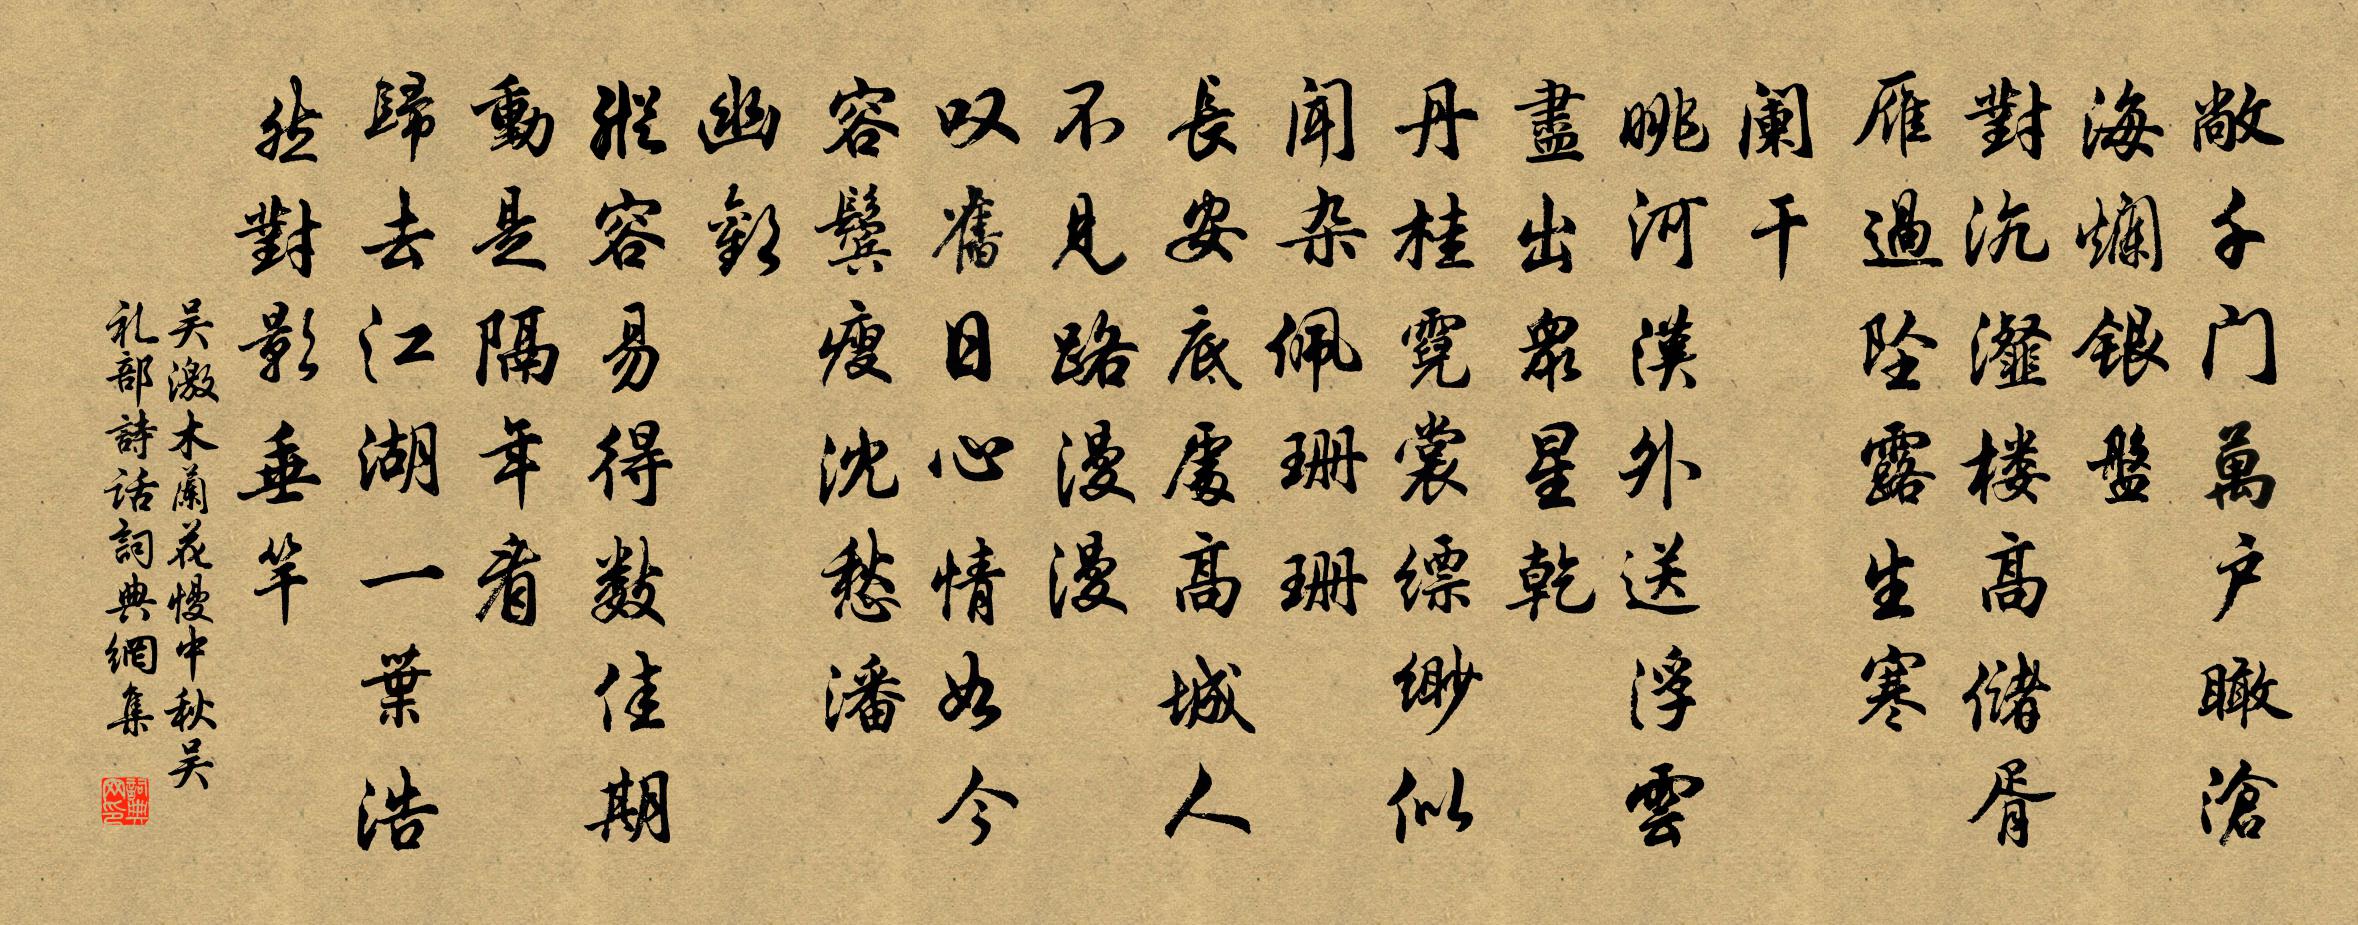 敞千门萬户瞰滄
海爛銀盤
對沆瀣楼高儲胥
雁過墜露生寒
阑干
眺河漢外送浮雲
盡出衆星乾
丹桂霓裳缥缈似
闻杂佩珊珊
長安底處高城人
不见路漫漫
叹舊日心情如今
容鬓瘦沈愁潘
幽歡
縱容易得数佳期
動是隔年看
歸去江湖一葉浩
然對影垂竿
吴激木蘭花慢中秋吴
礼部詩话詞典網集
詞典网印